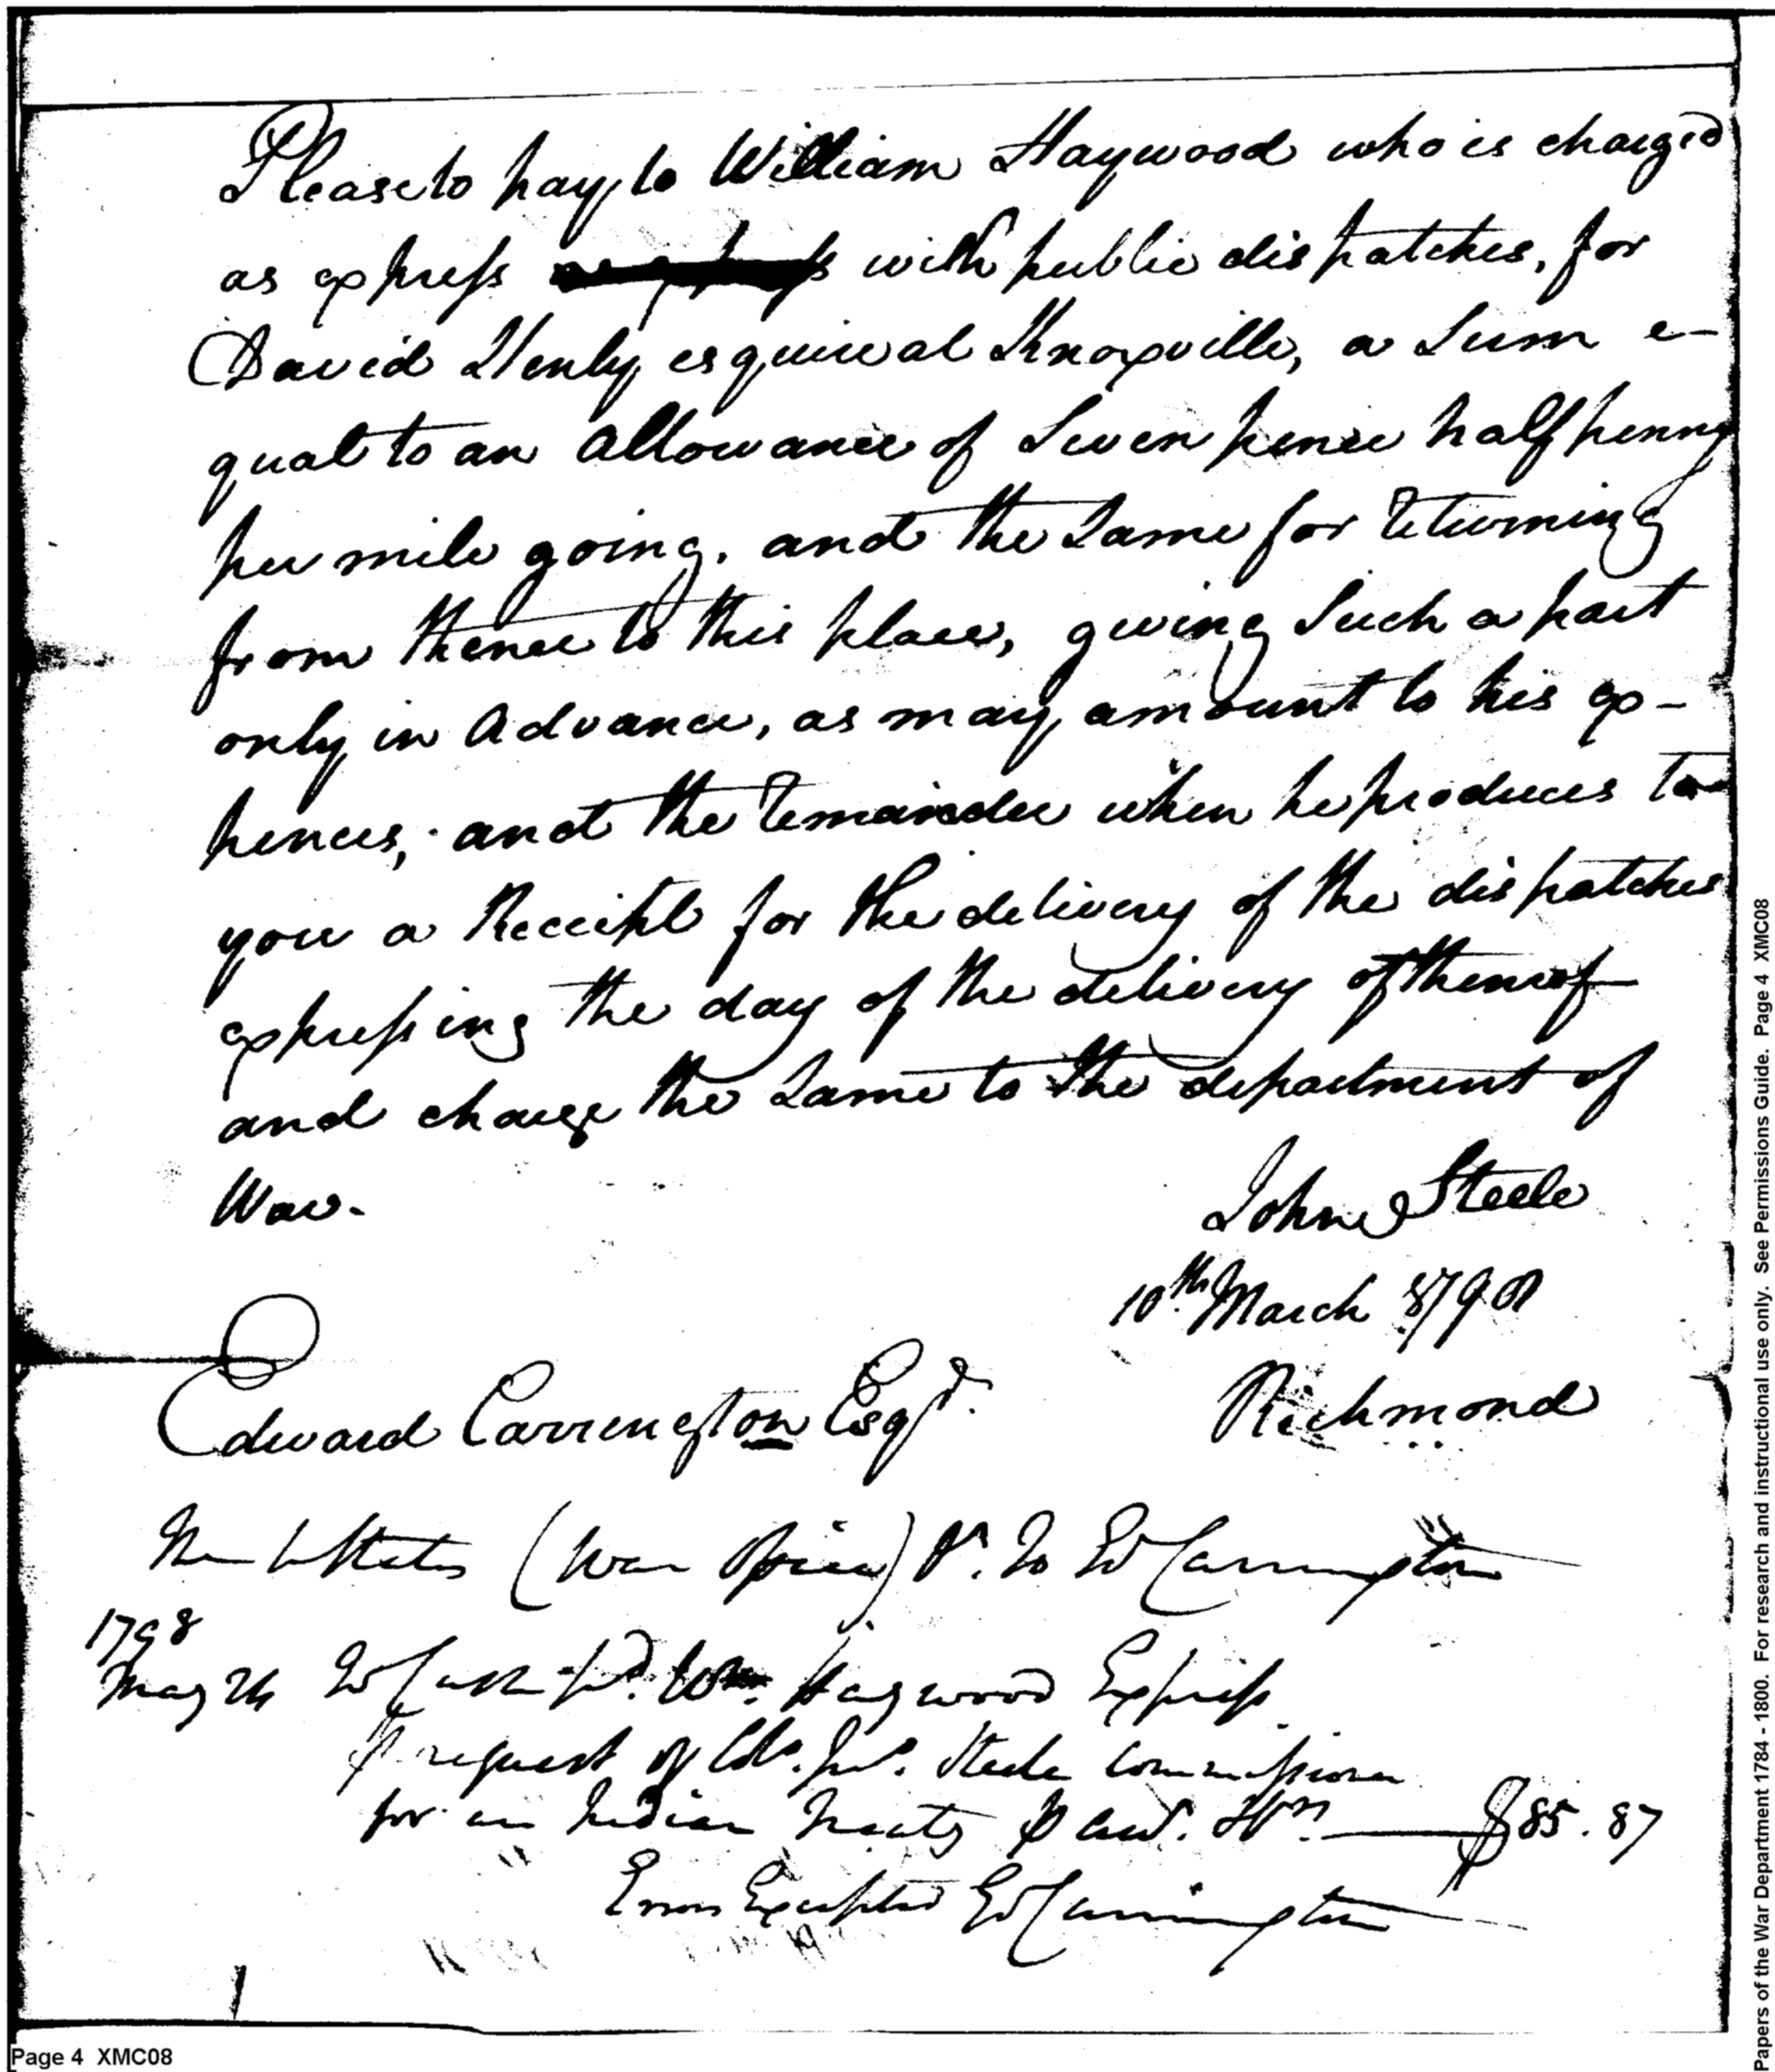 Please to pay to William Haywood who is charged
as express with public dispatches, for
David Henly esquire at Knoxville, a Sum e-
qual to an allowance of Seven pence half penny
per mile going, and the Same for returning
from thence to this place, giving Such a part
only in Advance, as may amount to his ex-
pences, and the remainder when he produces to
you a Receipt for the delivery of the dispatches
expressing the day of the delivery of thereof
and charge the Same to the department of
War.
John Steele
10th March 1798
Richmond
Edward Carrington Esqr.
States (War Office) Dr. To Ed Carrington
1798
May 24 To Cash pd. Wm. Haywood Express
request of Colo. Jno. Steele Commissioner
for an Indian Treaty $85.87
Errors Excepted Ed Carrington
Page 4 XMC08
Papers of the War Department 1784 - 1800. For research and instructional use only. See Permissions Guide. Page 4 XMC08